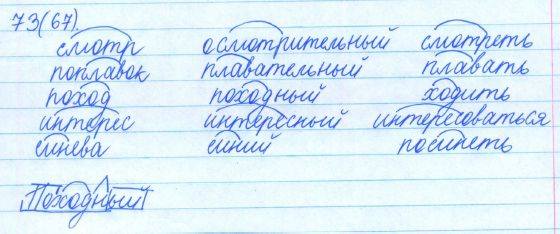 73(67)
смотр осмотрительный смотреть
поплавок плавательный плавать
поход походный ходить
интерес интересный интересоваться
синева синий посинеть
Походный